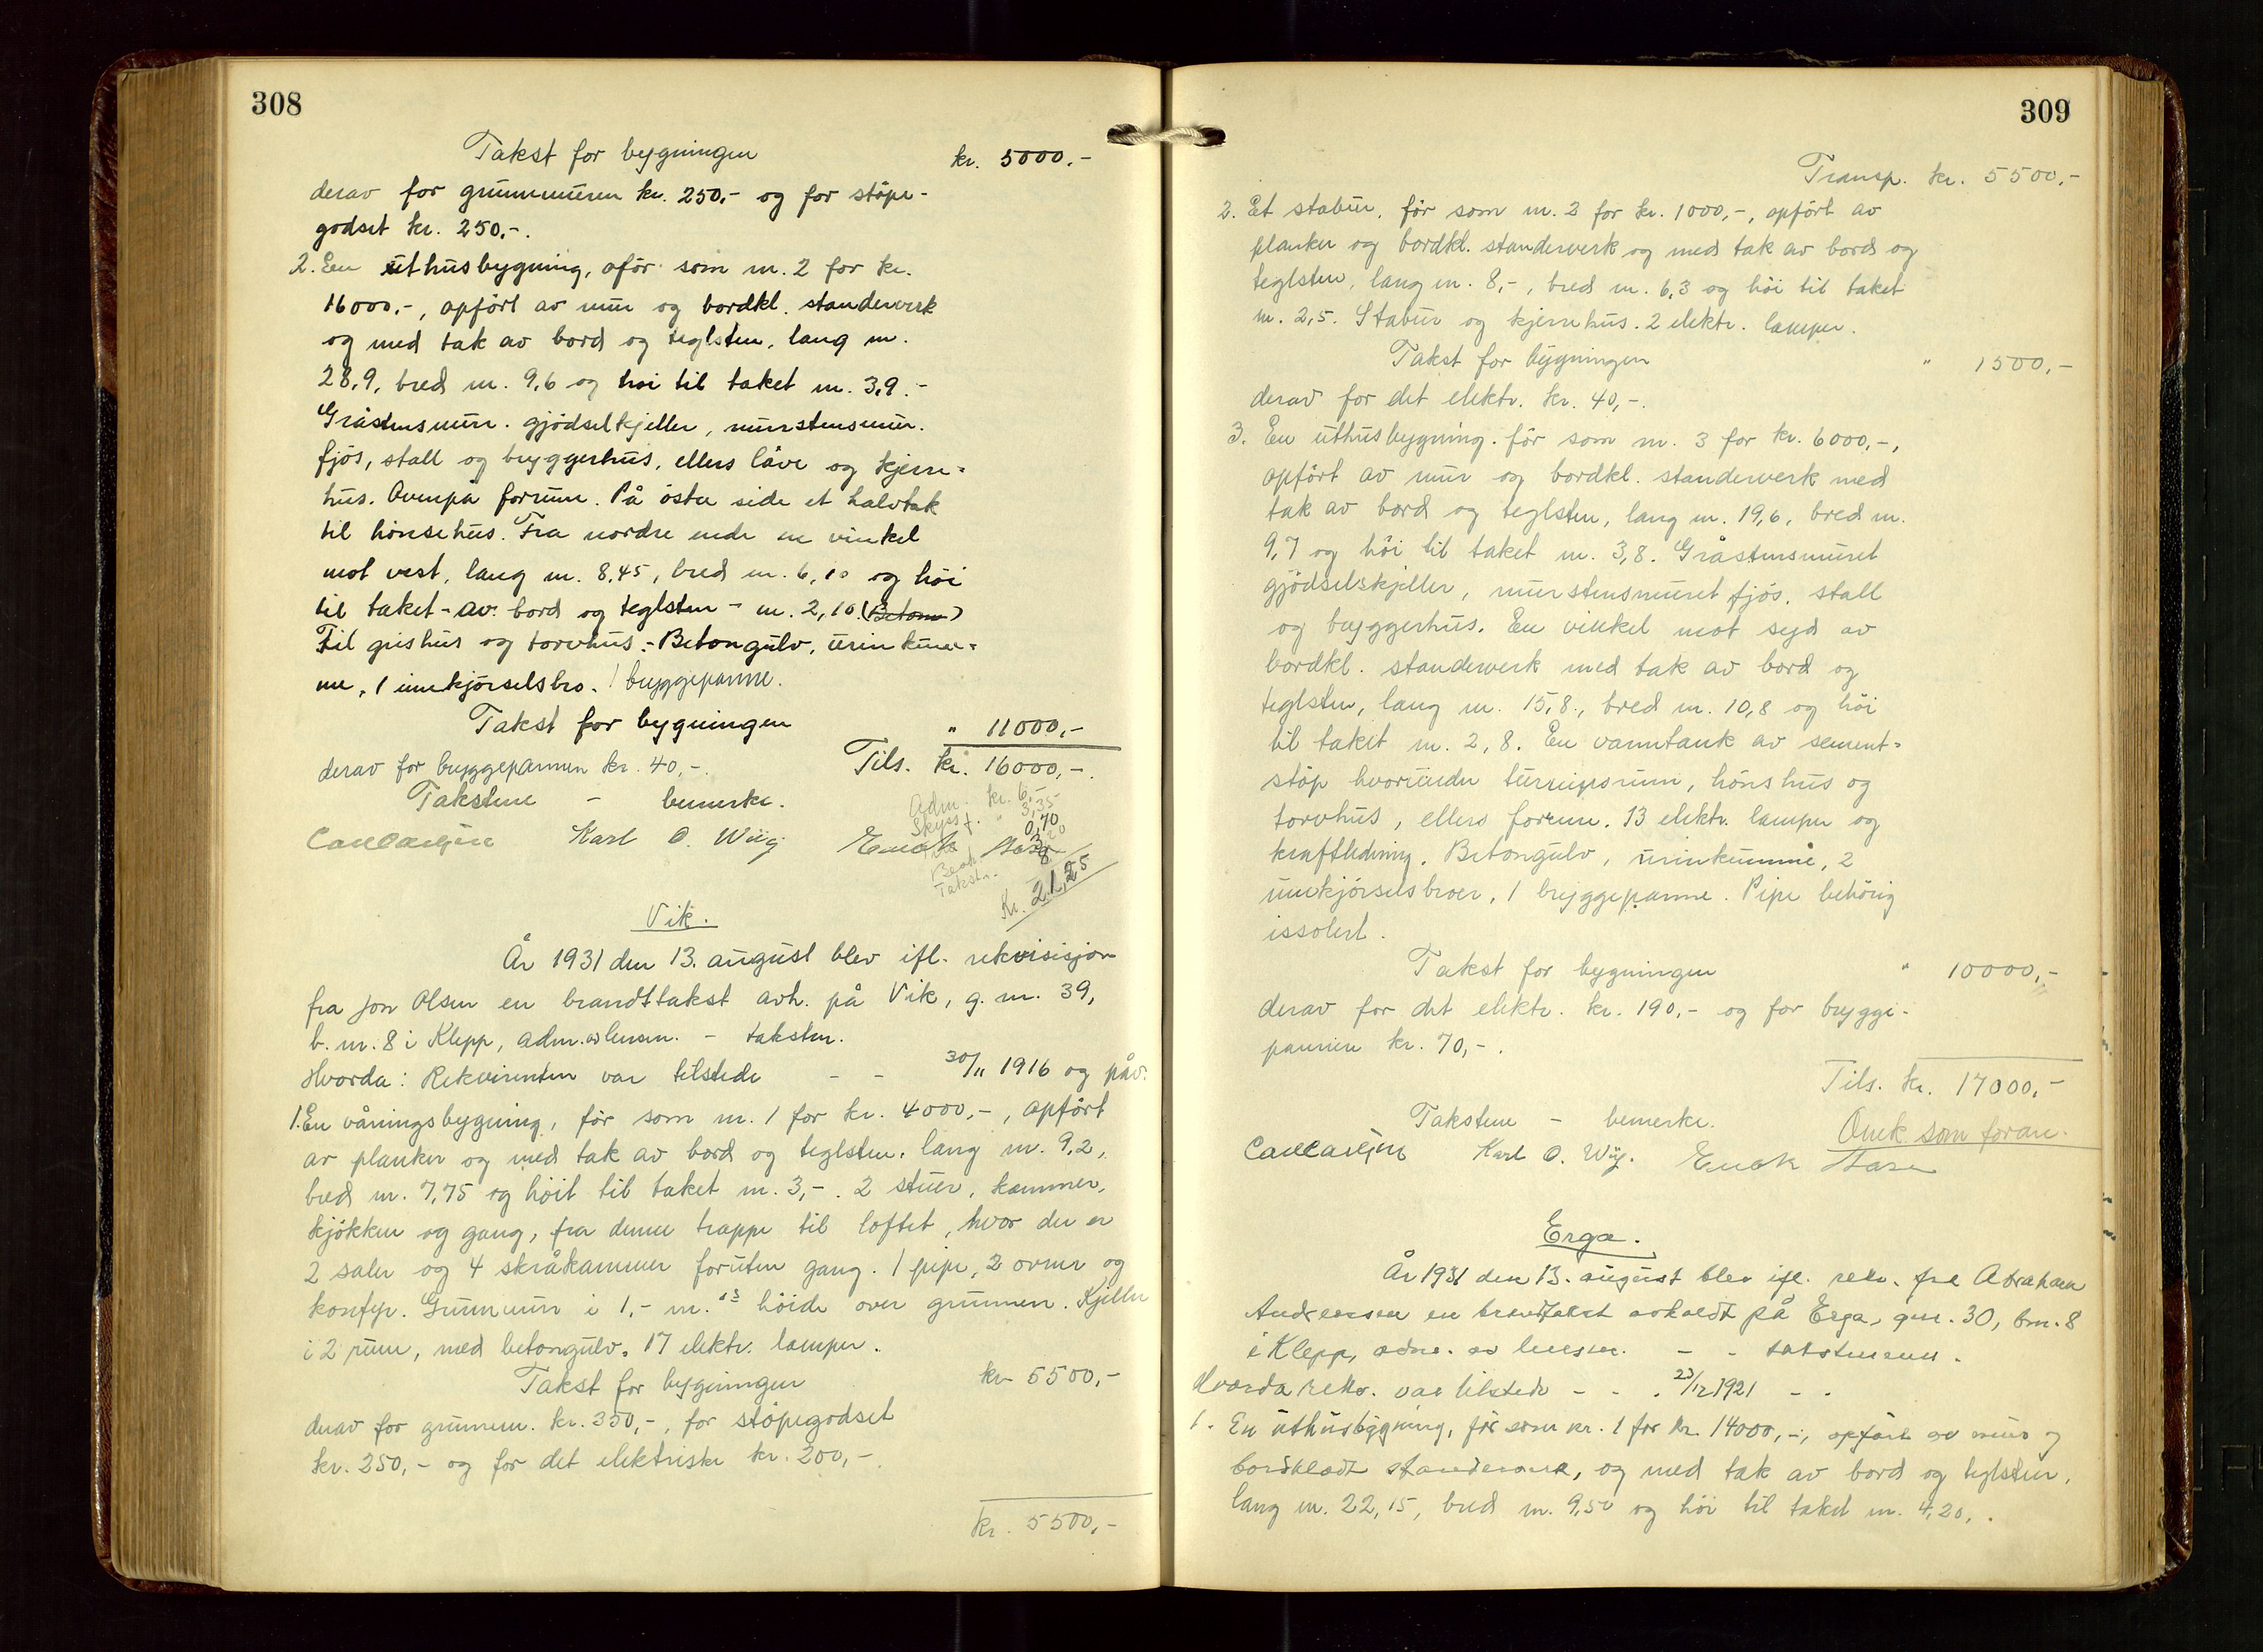 308
Takst for bygningen kr. 5000.-
derav for grunnmuren kr. 250,- og for støpe-
godset kr. 250.-.
2. En uthusbygning, før som nr. 2 for kr.
16000.-, opført av mur og bordkl. standerverk
og med tak av bord og teglsten, lang m.
28,9, bred m. 9,6 og høi til taket m. 3,9.-
Gråstensmur. gjødselkjeller, murstensmur.
fjøs, stall og bryggerhus, ellers låve og kjerre-
hus. Ovenpå forrum. På østre side et halvtak
til hønsehus. Fra nordre ende en vinkel
mot vest, lang m. 8,45, bred m. 6,10 og høi
til taket - av bord og teglsten - m. 2,10 (Betonn)
Til grishus og torvhus. - Betongulv, urinkum-
me, 1 innkjørselsbro. 1 bryggepanne.
Takst for bygningen " 11000,-
derav for bryggepannen kr. 40,-. Tils. kr. 16000,-.
Takstene - bemerke.
Adm. kr. 6,-
Skyss f. " 3,35
0,70
Takstn.
Kr. 21,25
Karl O. Wiig Enok
Vik.
År 1931 den 13. august blev ifl. rekvisisjon
fra Jon Olsen en brandttakst avh. på Vik, g. nr. 39,
b. nr. 8 i Klepp, adm. av lensm. - takstm.
Hvorda: Rekvirenten var tilstede - - 30/11 1916 og påv.
1. En våningsbygning, før som nr. 1 for kr. 4000,-, opført
av planker og med tak av bord og teglsten, lang m. 9,2,
bred m. 7,75 og høit til taket m. 3,-. 2 stuer, kammer,
kjøkken og gang, fra denne trappe til loftet, hvor der er
2 saler og 4 skråkammer foruten gang. 1 pipe, 2 ovner og
komfyr. Grunnmur i 1,- m. høide over grunnen. Kjeller
i 2 rum, med betongulv. 17 elektr. lamper.
Takst for bygningen kr 5500,-
derav for grunnm. kr. 350,-, for støpegodset
kr. 250,- og for det elektriske kr. 200,-.
kr. 5500,-
309
Transp. kr. 5500,-
2. Et stabur, før som nr. 2 for kr. 1000,-, opført av
planker og bordkl. standerverk og med tak av bord og
teglsten, lang m. 8,-, bred m. 6,3 og høi til taket
m. 2,5. Stabur og kjernhus. 2 elektr. lamper.
Takst for bygningen " 1500,-
derav for det elektr. kr. 40,-.
3. En uthusbygning. før som nr. 3 for kr. 6000,-,
opført av mur og bordkl. standerverk med
tak av bord og teglsten, lang m. 19,6, bred m.
9,7 og høi til taket m. 3,8. Gråstensmuret
gjødselskjeller, murstensmuret fjøs, stall
og bryggerhus. En vinkel mot syd av
bordkl. standerverk med tak av bord og
teglsten, lang m. 15,8, bred m. 10,8 og høi
til taket m. 2,8. En vanntank av sement-
støp hvorunder turnipsrum, hønshus og
torvhus, ellers forrum. 13 elektr. lamper og
kraftledning. Betongulv, urinkumme, 2
innkjørselsbroer, 1 bryggepanne. Pipe behørig
issolert.
Takst for bygningen " 10000,-
derav for det elektr. kr. 190,- og for brygge-
pannen kr. 70,-.
Tils. kr. 17000,-
Takstene - bemerke.
Omk. som foran.
Karl O. Wiig. Enok
Erga.
År 1931 den 13. august blev ifl. rekv. fra Abraham
Andreassen en brandtakst avholdt på Erga, gnr. 30, bnr. 8
i Klepp, adm. av lensm. - - takstmenn.
Hvorda rekv. var tilstede - - . 23/12 1921 - .
1. En uthusbygning, før som nr. 1 for kr. 14000,-, opført av mur og
bordklædt standerverk, og med tak av bord og teglsten,
lang m. 22,15, bred m. 9,50 og høi til taket m. 4,20,.